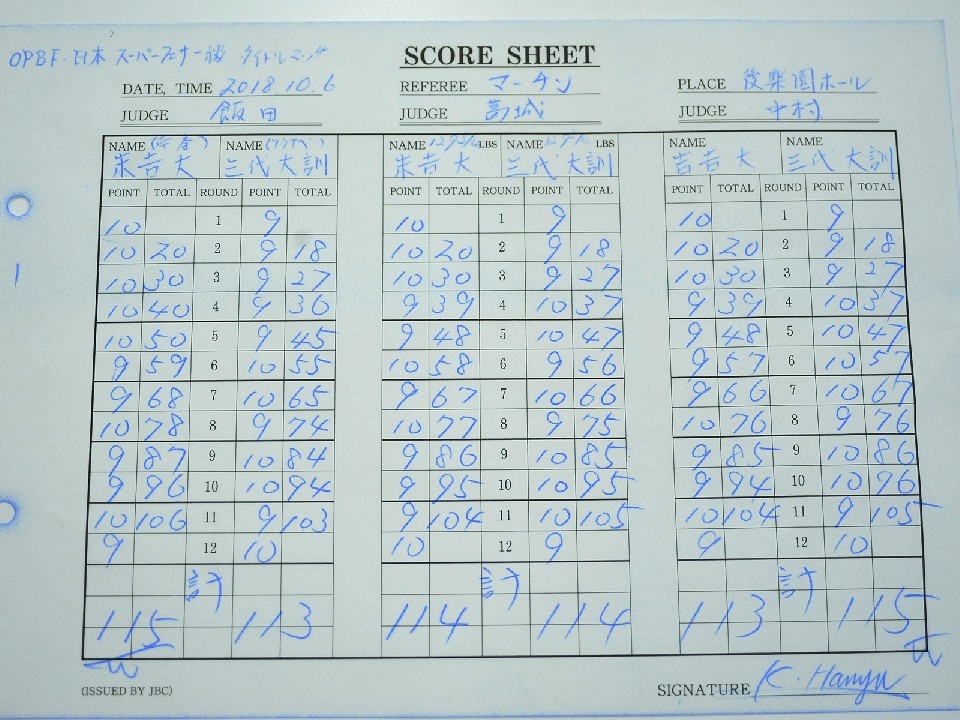 OPBF・日本 スーパーフェザー級 タイトルマッチ
SCORE SHEET
DATE, TIME 2018.10.6 REFEREE マーチン PLACE 後楽園ホール
JUDGE 飯田 JUDGE 高城 JUDGE 中村
NAME NAME NAME LBS NAME LBS NAME NAME
末吉 大 三代 大訓 末吉 大 三代 大訓 吉 大 三代 大訓
POINT TOTAL ROUND POINT TOTAL POINT TOTAL ROUND POINT TOTAL POINT TOTAL ROUND POINT TOTAL
10 1 9 10 1 9 10 1 9
10 20 2 9 18 10 20 2 9 18 10 20 2 9 18
10 30 3 9 27 10 30 3 9 27 10 30 3 9 27
10 40 4 9 36 9 39 4 10 37 9 39 4 10 37
10 50 5 9 45 9 48 5 10 47 9 48 5 10 47
9 59 6 10 55 10 58 6 9 56 9 57 6 10 57
9 68 7 10 65 9 67 7 10 66 9 66 7 10 67
10 78 8 9 74 10 77 8 9 75 10 76 8 9 76
9 87 9 10 84 9 86 9 10 85 9 85 9 10 86
9 96 10 10 94 9 95 10 10 95 9 94 10 10 96
10 106 11 9 103 9 104 11 10 105 10 104 11 9 105
9 12 10 10 12 9 9 12 10
計 計 計
115 113 114 114 113 115
W W
(ISSUED BY JBC) SIGNATURE K. Hanyu